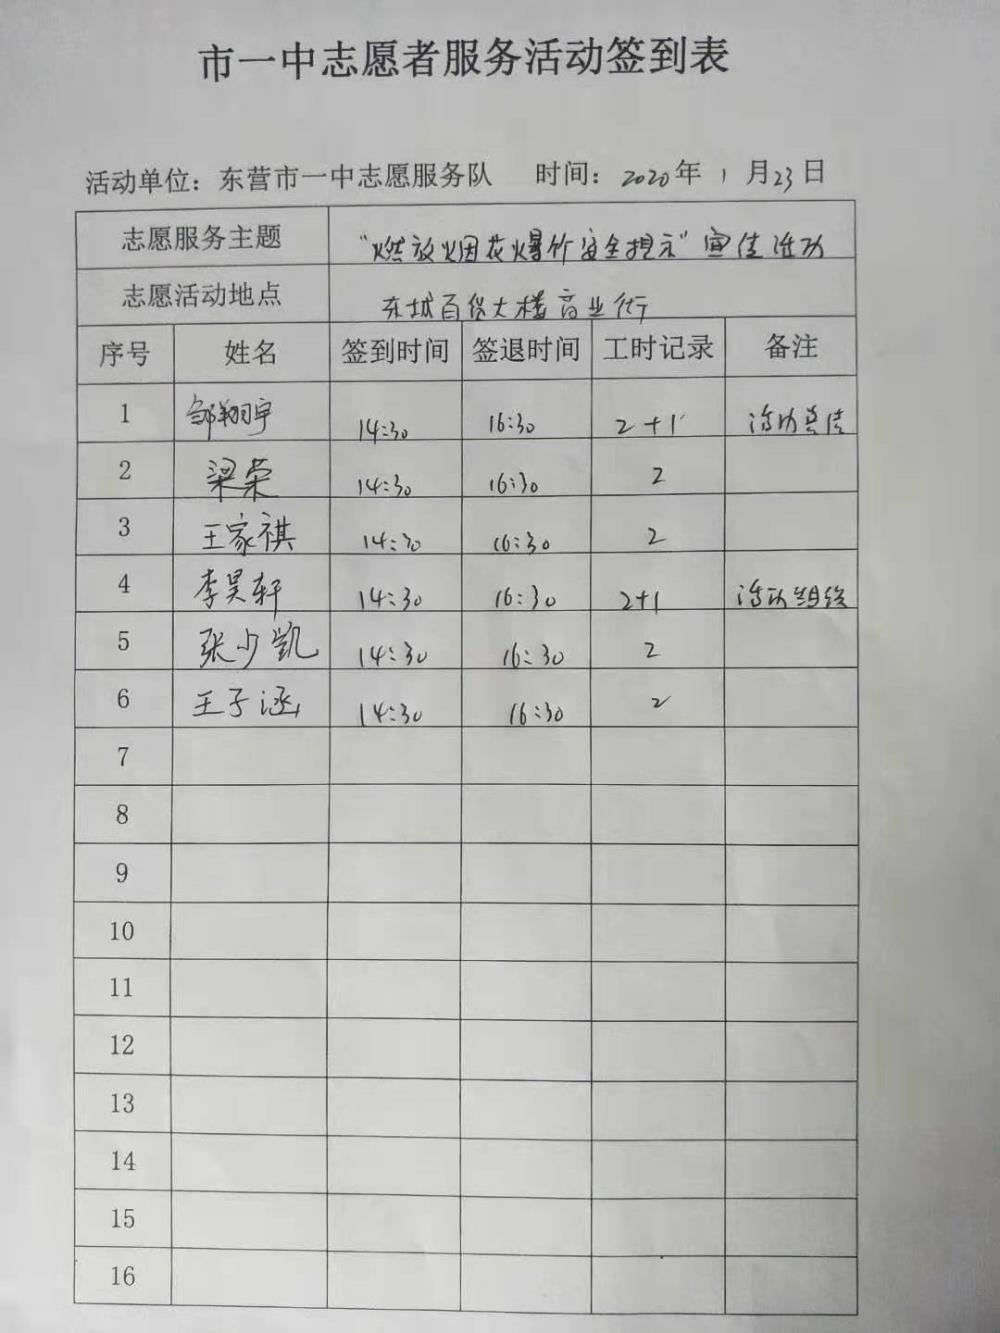 市一中志愿者服务活动签到表
活动单位：东营市一中志愿服务队 时间：2020年 1月23日
志愿服务主题 “燃放烟花爆竹安全提示”宣传活动
志愿活动地点 东城百货大楼商业街
序号 姓名 签到时间 签退时间 工时记录 备注
1 邹翔宇 14:30 16:30 2+1 活动宣传
2 梁荣 14:30 16:30 2
3 王家祺 14:30 16:30 2
4 李昊轩 14:30 16:30 2+1 活动组织
5 张少凯 14:30 16:30 2
6 王子涵 14:30 16:30 2
7
8
9
10
11
12
13
14
15
16